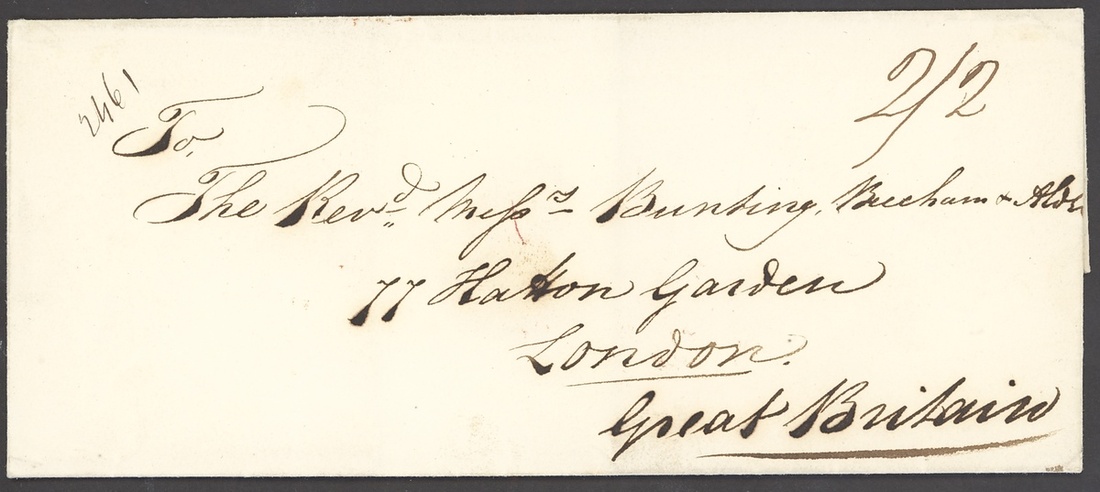 2461
2/2
To,
The Revd. Messrs. Bunting, Beecham & Alde
77 Hatton Garden
London.
Great Britain